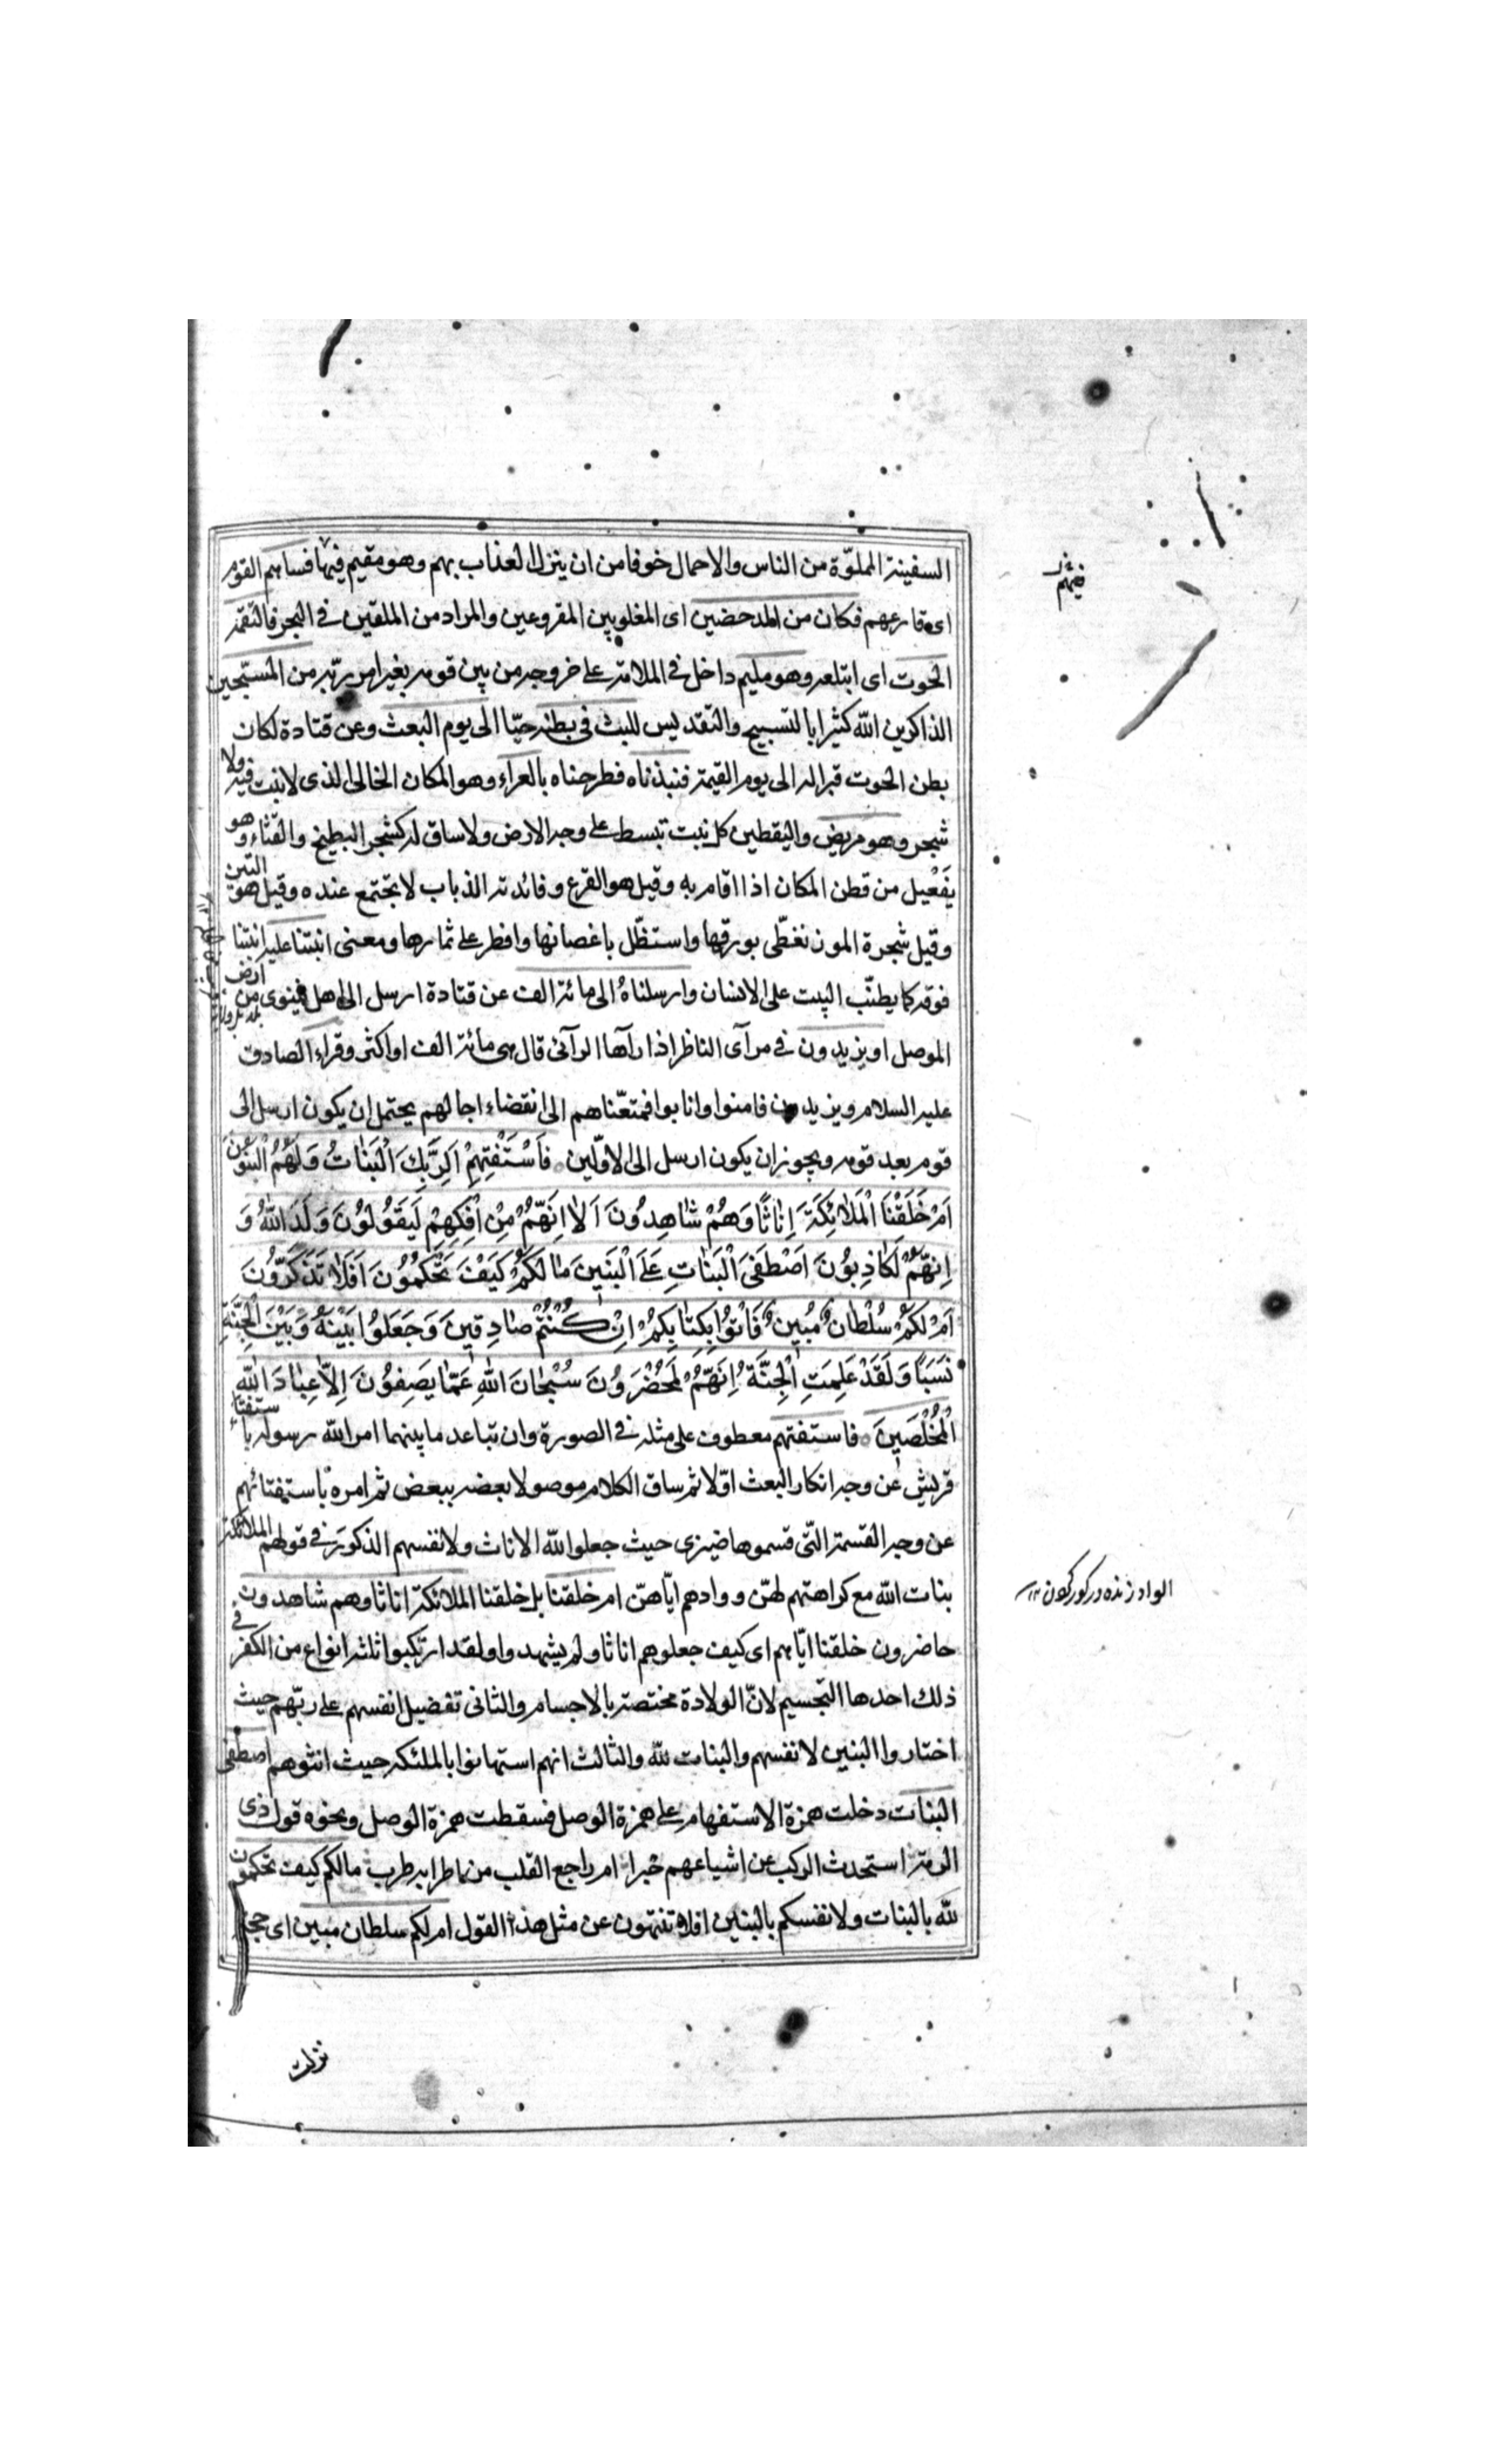 السفينة المملوّة من الناس والاحمال خوفا من ان ينزل العذاب بهم وهو مقيم فيها فساهم القوم
اى قارعهم فكان من المدحضين اى المغلوبين المقروعين والمراد من الملقين فى البحر فالتقمه
الحوت اى ابتلعه وهو مليم داخل فى الملامة على خروجه من بين قومه بغير امر ربّه من المسبّحين
الذاكرين اللّه كثيرا بالتسبيح والتقديس للبث فى بطنه حيّا الى يوم البعث وعن قتادة لكان
بطن الحوت قبرا له الى يوم القيمة فنبذناه فطرحناه بالعراء وهو المكان الخالى الذى لا نبت فيه ولا
شجر وهو مريض واليقطين كل نبت تبسط على وجه الارض ولا ساق له كشجر البطيخ والقثّاء وهو
يَفْعيل من قطن المكان اذا اقام به وقيل هو القرع وفائدته الذباب لا تجتمع عنده وقيل هو التين
وقيل شجرة الموز تغطّى بورقها واستظّل باغصانها وافطر على ثمارها ومعنى انبتنا عليه انبتنا
فوقه كما يطنّب البيت على الانسان وارسلناهُ الى مائة الف عن قتادة ارسل الى اهل نينوى من ارض
الموصل او يزيدون فى مرآى الناظر اذا رآها الرآئى قال هى مائة الف او اكثر وقراء الصادق
عليه السلام ويزيدون فامنوا وانابوا فمتعّناهم الى انقضاء اجالهم يحتمل ان يكون ارسل الى
قوم بعد قوم ويجوز ان يكون ارسل الى الاوّلين فَاسْتَفْتِهِمْ اَلِرَبِّكَ الْبَنَاتُ وَلَهُمُ الْبَنُونَ
اَمْ خَلَقْنَا الْمَلَائِكَةَ اِنَاثًا وَهُمْ شَاهِدُونَ اَلَا اِنَّهُمْ مِنْ اِفْكِهِمْ لَيَقُولُونَ وَلَدَ اللّهُ وَ
اِنَّهُمْ لَكَاذِبُونَ اَصْطَفَى الْبَنَاتِ عَلَى الْبَنِينَ مَا لَكُمْ كَيْفَ تَحْكُمُونَ اَفَلَا تَذَكَّرُونَ
اَمْ لَكُمْ سُلْطَانٌ مُبِينٌ فَاْتُوا بِكِتَابِكُمْ اِنْ كُنْتُمْ صَادِقِينَ وَجَعَلُوا بَيْنَهُ وَبَيْنَ الْجِنَّةِ
نَسَبًا وَلَقَدْ عَلِمَتِ الْجِنَّةُ اِنَّهُمْ لَمُحْضَرُونَ سُبْحَانَ اللّهِ عَمَّا يَصِفُونَ اِلَّا عِبَادَ اللّهِ
الْمُخْلَصِينَ فاستفتهم معطوف على مثله فى الصورة وان تباعد ما بينهما امر اللّه رسوله باستفتاء
قريش عن وجه انكار البعث اوّلا ثم ساق الكلام موصولا بعضه ببعض ثم امره باستفتائهم
عن وجه القسمة التّى قسموها ضيزى حيث جعلوا للّه الاناث ولانفسهم الذكور فى قولهم الملائكة
بنات اللّه مع كراهتهم لهنّ ووادهم ايّاهنّ ام خلقنا بل خلقنا الملائكة اناثا وهم شاهدون
حاضرون خلقنا ايّاهم اى كيف جعلوهم اناثا ولم يشهدوا ولقد ارتكبوا ثلثة انواع من الكفر فى
ذلك احدها التجسيم لانّ الولادة مختصة بالاجسام والثانى تفضيل انفسهم على ربّهم حيث
اختاروا البنين لانفسهم والبنات للّه والثالث انهم استهانوا بالملئكه حيث انثوهم اصطفى
البنات دخلت همزة الاستفهام على همزة الوصل فسقطت همزة الوصل ونحوه قول ذى
الرمة استحدث الركب عن اشياعهم خبرا ام راجع القلب من اطرابه طرب ما لكم كيف تحكمون
للّه بالبنات ولانفسكم بالبنين افلا تنتهون عن مثل هذا القول ام لكم سلطان مبين اى حجة
نزلت
الواد زنده در گور كردن ١٢